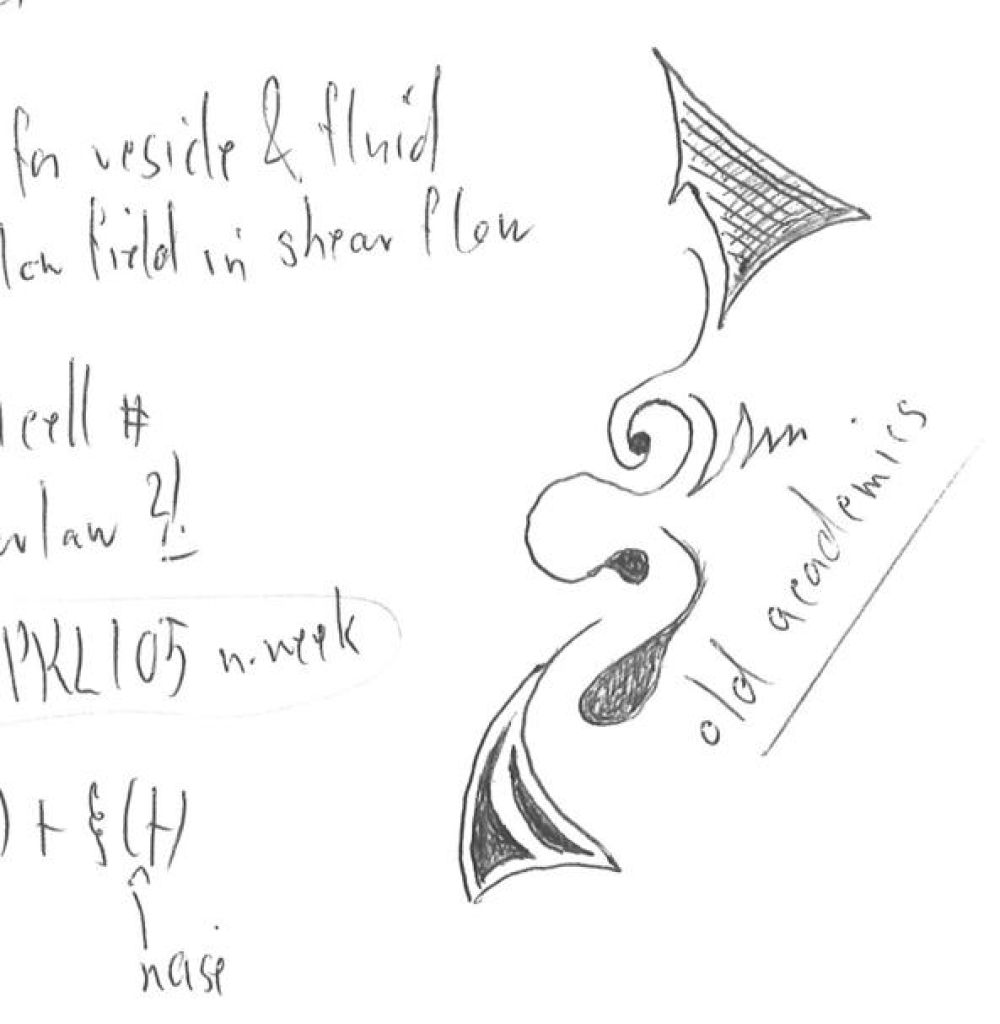 for vesicle & fluid
field in shear flow
cell #
law ?!
PKL105 n.week
) + ξ(t)
noise
old academics